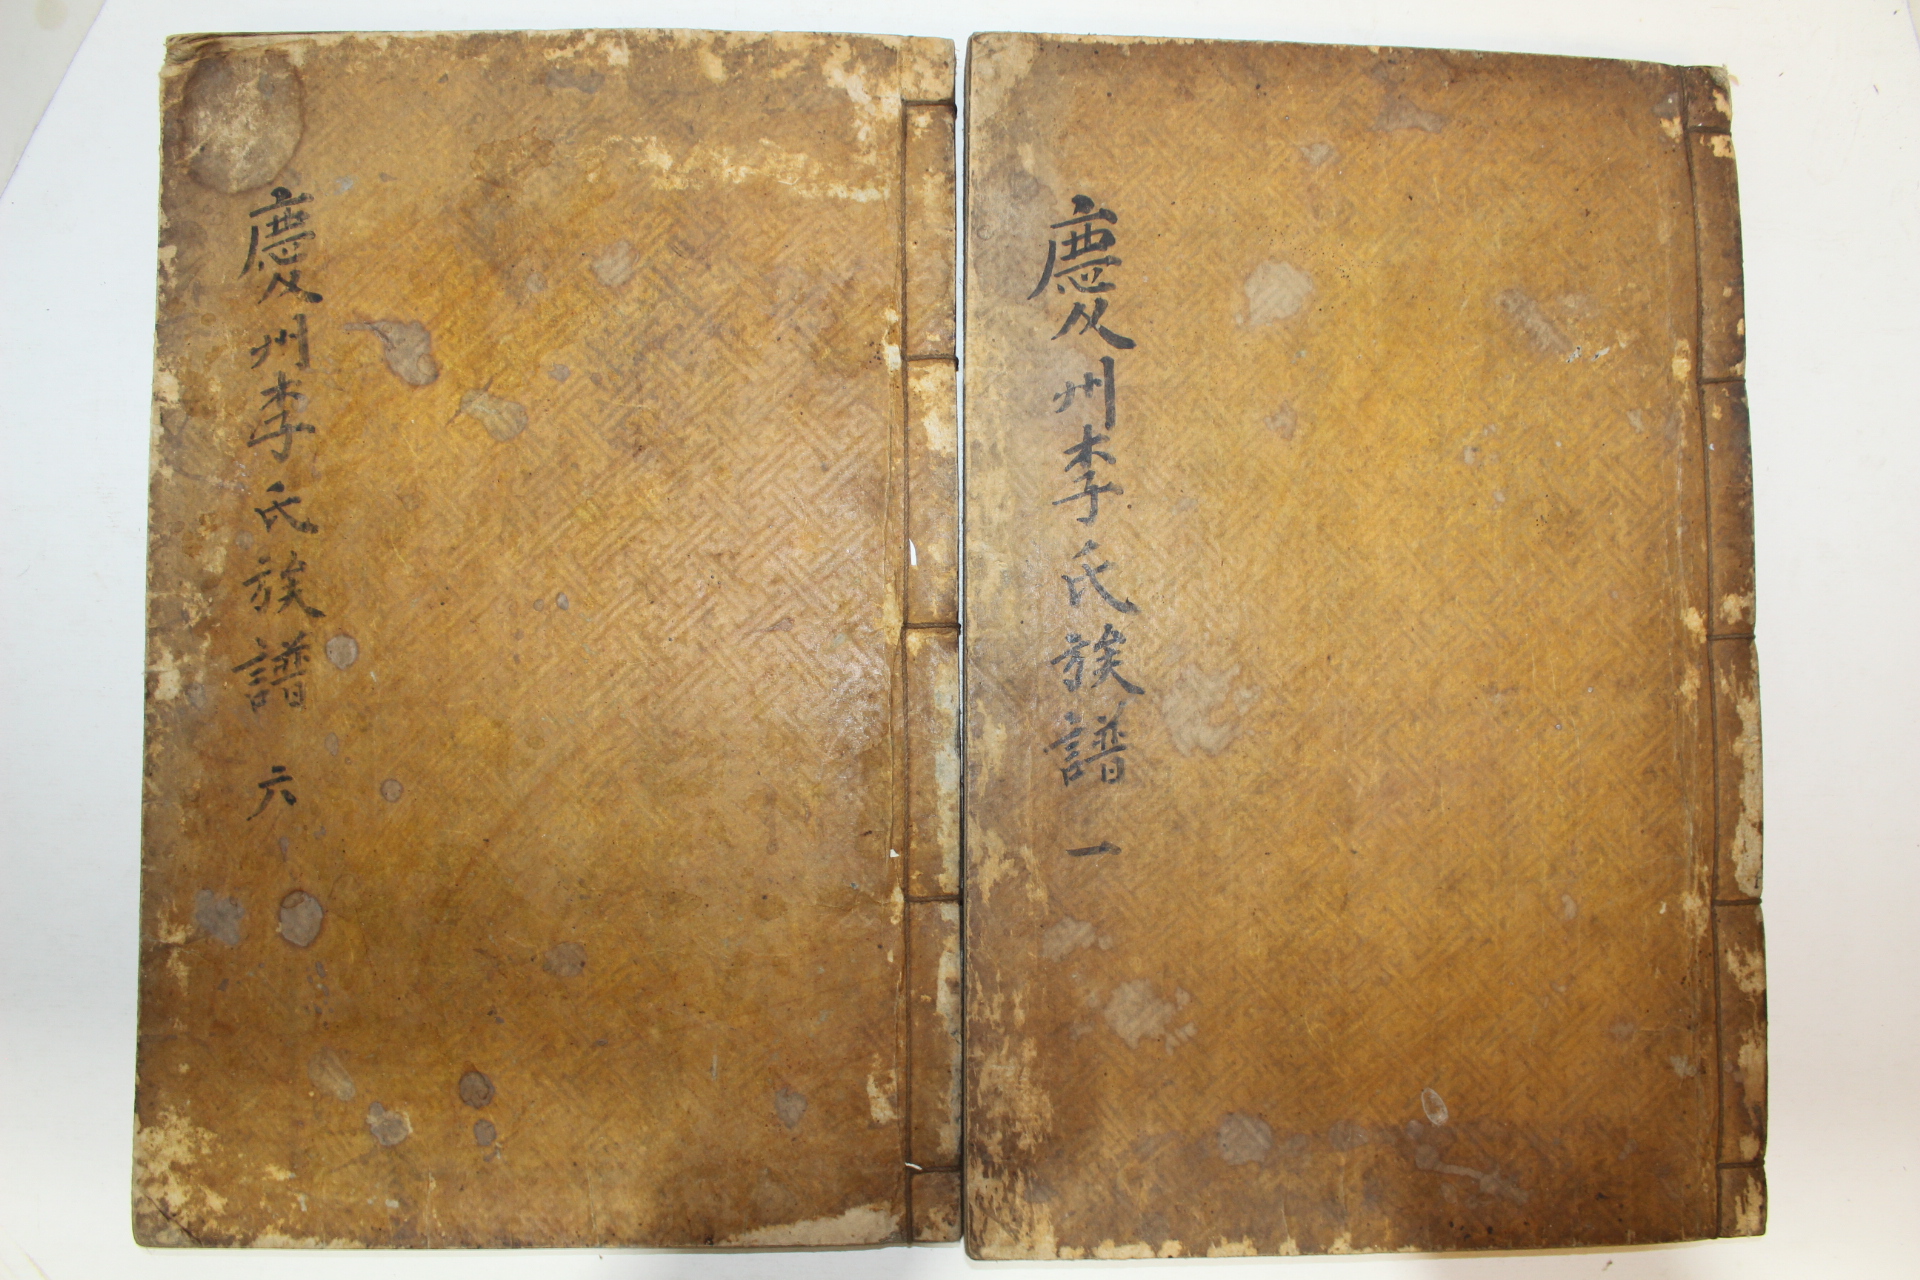 慶州李氏族譜 一
慶州李氏族譜 六